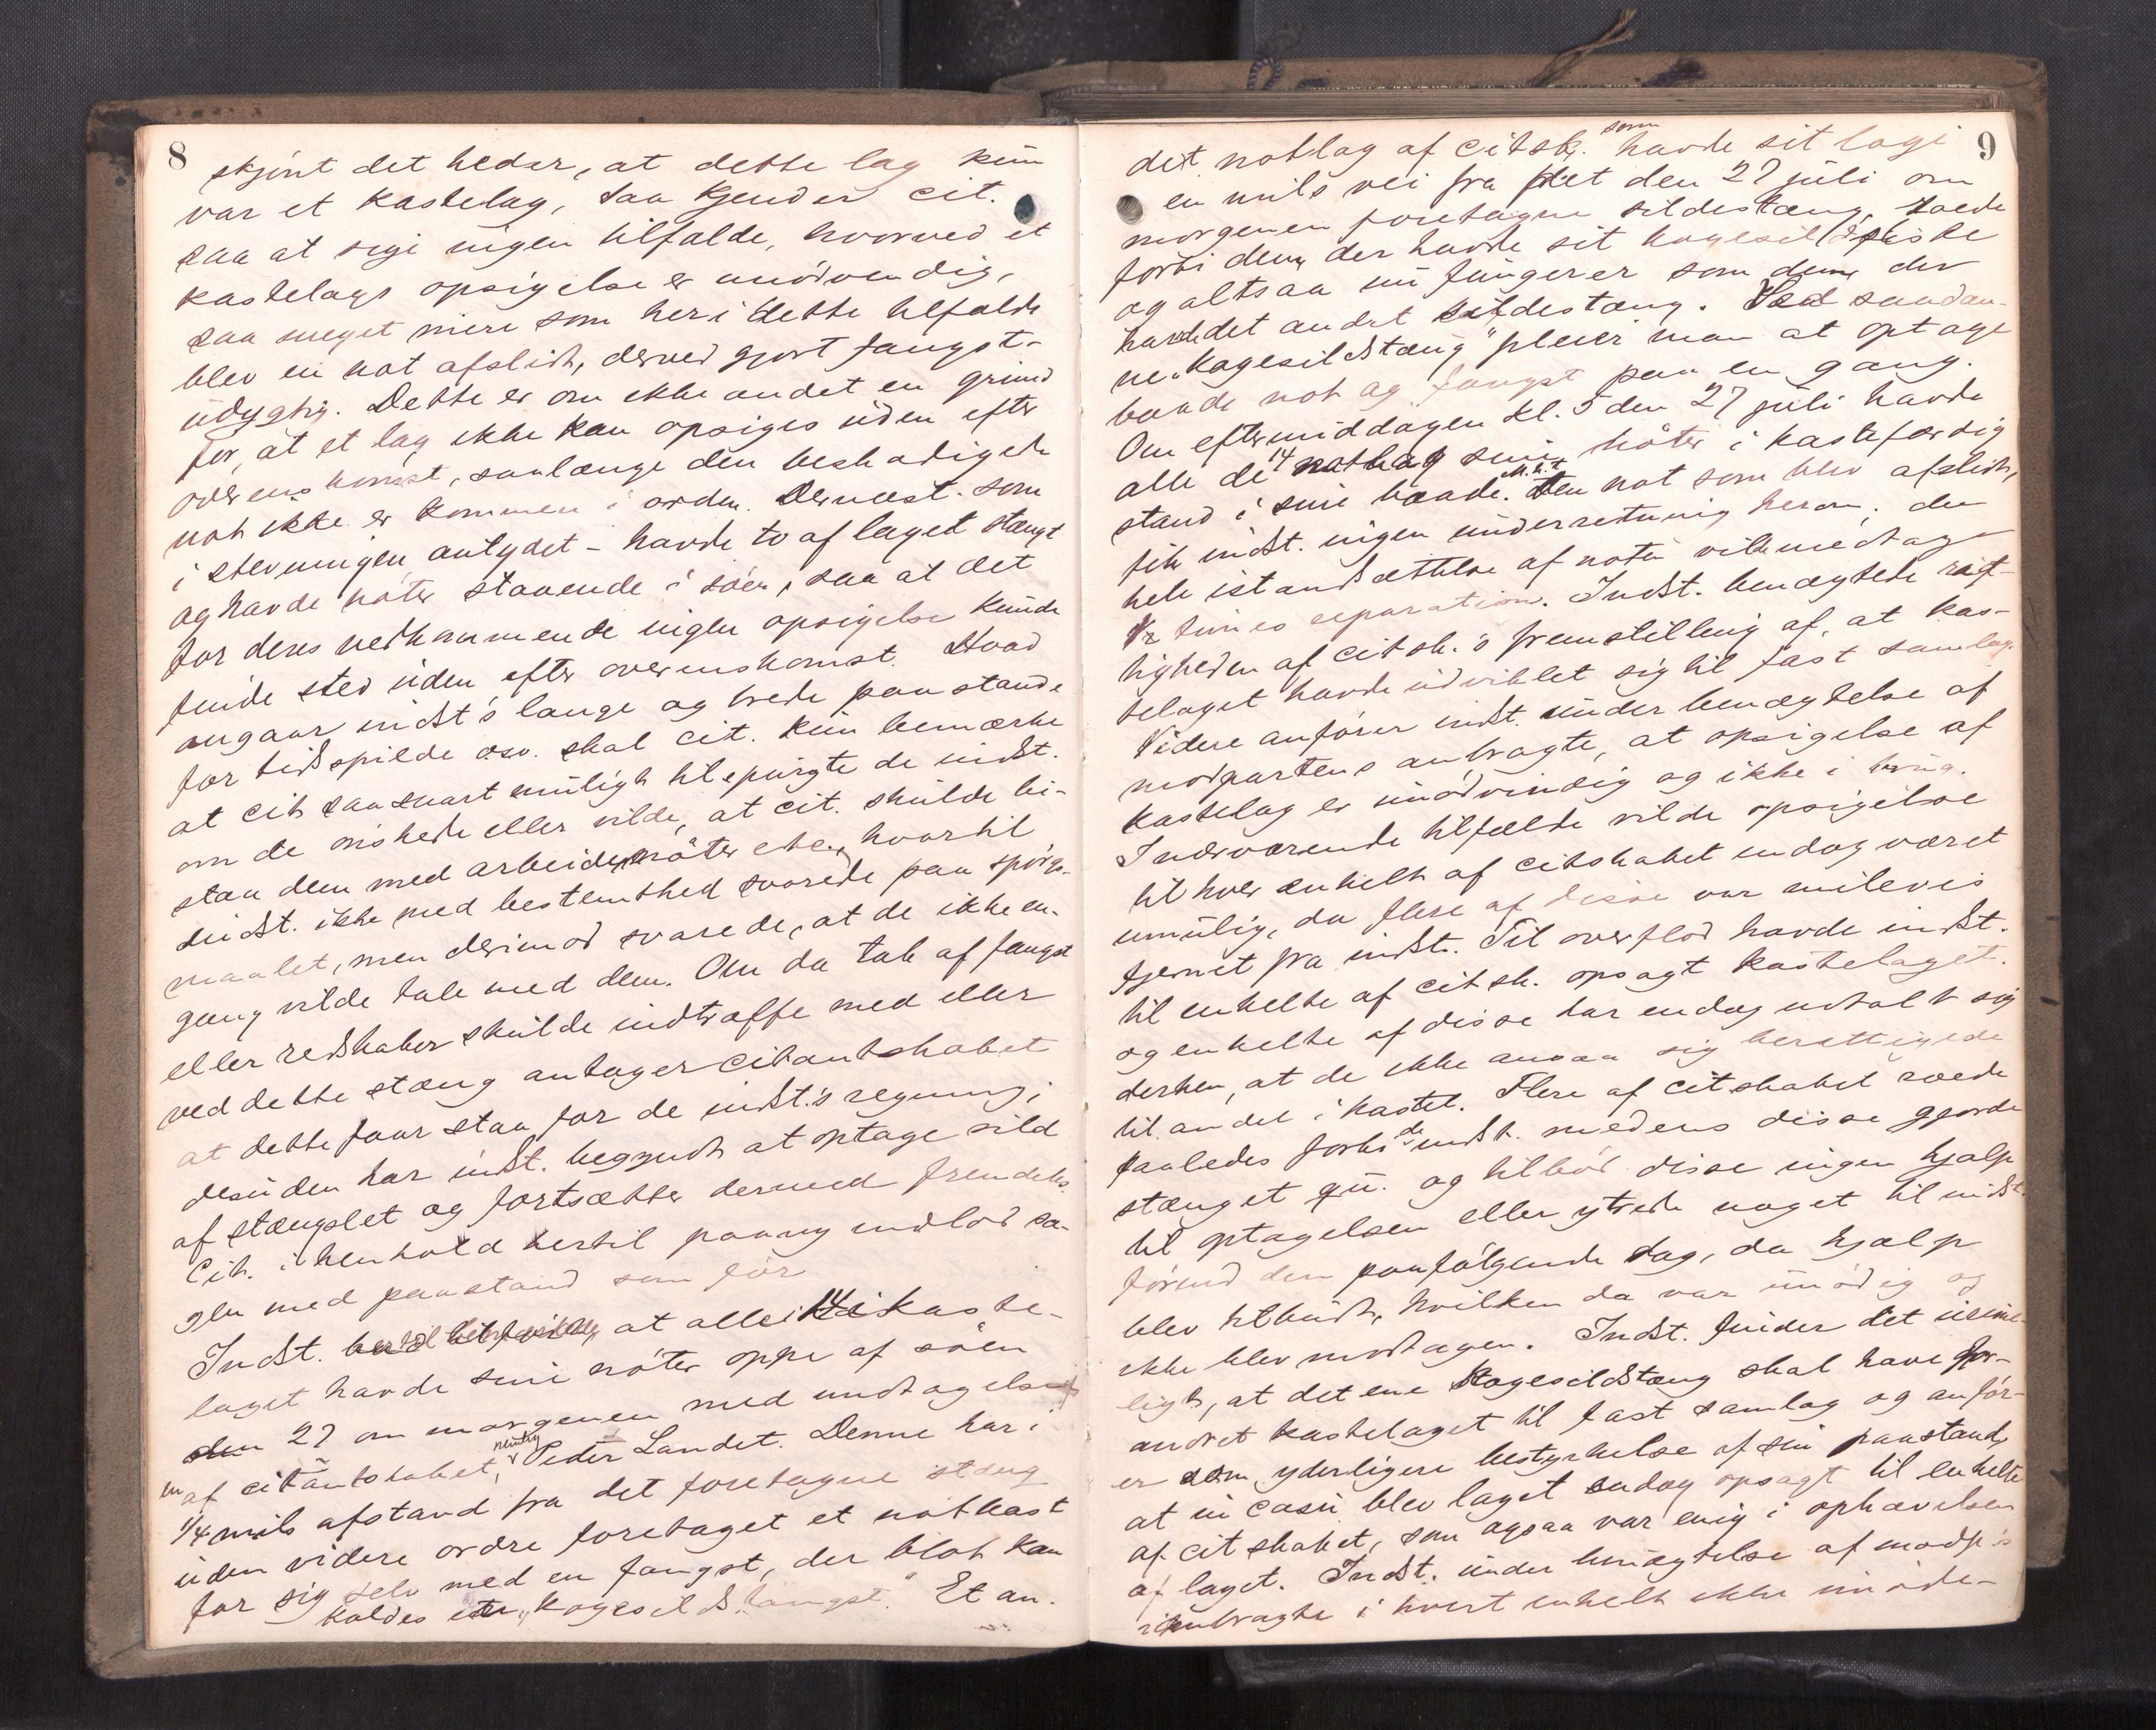 8
skjönt det heder, at dette lag kun
var et kastelag, saa kjender cit.
saa at sige ingen tilfælde, hvorved et
kastelags opsigelse er unödvendig,
saa meget mere som her i dette tilfælde
blev en not afslidt, derved gjort fangst-
udygtig. Dette er om ikke andet en grund
for, at et lag ikke kan opsiges uden efter
overenskomst, saalænge den beskadigede
not ikke er kommen i orden. Dernæst - som
i stevningen antydet - havde to af laget stængt
og havde nöter staaende i söen, saa at det
for deres vedkommende ingen opsigelse kunde
finde sted uden efter overenskomst. Hvad
angaar indst's lange og brede paastande
for tidsspilde osv. skal cit. kun bemærke
at cit saa snart muligt tilspurgte de indst.
om de önskede eller vilde, at cit. skulde bi-
staa dem med arbeide, nöter etc., hvortil
indst. ikke med bestemthed svarede paa spörgs-
maalet, men derimod svarede, at de ikke en-
gang vilde tale med dem. Om da tab af fangst
eller redskaber skulde indtræffe med eller
ved dette stæng antager citantskabet
at dette faar staa for de indst.'s regning;
desuden har indst. begyndt at optage sild
af stængslet og fortsætter dermed fremdeles.
Cit. i henhold hertil paany indlod sa-
gen med paastand som för
Indst. at alle i kaste-
laget havde sine nöter oppe af söen
den 27 om morgenen med undtagelse af
en af citantskabet, nemlig Peder Landet. Denne har i
1/4 mils afstand fra det foretagne stæng
uden videre ordre foretaget et notkast
for sig selv med en fangst, der blot kan
kaldes en "kogesildsfangst." Et an-
9
det notlag af citsk. som havde sit lag i
en mils vei fra det den 27 juli om
morgenen foretagne sildestæng, roede
forbi dem, der havde sit kogesildfiske
og altsaa nu fungerer som dem, der
havde det andet sildestæng. Ved saadan-
ne "Kogesildstæng" pleier man at optage
baade not og fangst paa en gang.
Om eftermiddagen kl. 5 den 27 juli havde
alle de 14 notlag sine nöter i kastefærdig
stand i sine baade. M.h.t. den not som blev afslidt,
fik indst. ingen underretning herom; den
hele istandsættelse af noten vilde medtage
1/2 times reparation. Indst. benægtede rigt-
igheden af citsk.'s fremstilling af, at kas-
telaget havde udviklet sig til fast samlag.
Videre anförer indst. under benægtelse af
modpartens anbragte, at opsigelse af
kastelag er unödvendig og ikke i brug.
I nærværende tilfælde vilde opsigelse
til hver enkelt af citskabet endog været
umulig, da flere af disse var milevis
fjernet fra indst. Til overflod havde indst.
til enkelte af citsk. opsagt kastelaget.
og enkelte af disse har endog udtalt sig
derhen, at de ikke ansaa sig berettigede
til andel i kastet. Flere af citskabet roede
saaledes forbi de indst. medens disse gjorde
stænget qu. og tilböd disse ingen hjælp
til optagelsen eller ytrede noget til indst.
förend den paafölgende dag, da hjælp
blev tilbudt, hvilken da var unödig og
ikke blev modtagen. Indst. finder det urime-
ligt, at det ene Kogesildstæng skal have for-
andret kastelaget til fast samlag og anför-
er som yderligere bestyrkelse af sin paastand,
at in casu blev laget endog opsagt til enkelte
af citskabet, som ogsaa var enig i ophævelsen
af laget. Indst. under benægtelse af modp.'s
anbragte i hvert enkelt ikke imöde-